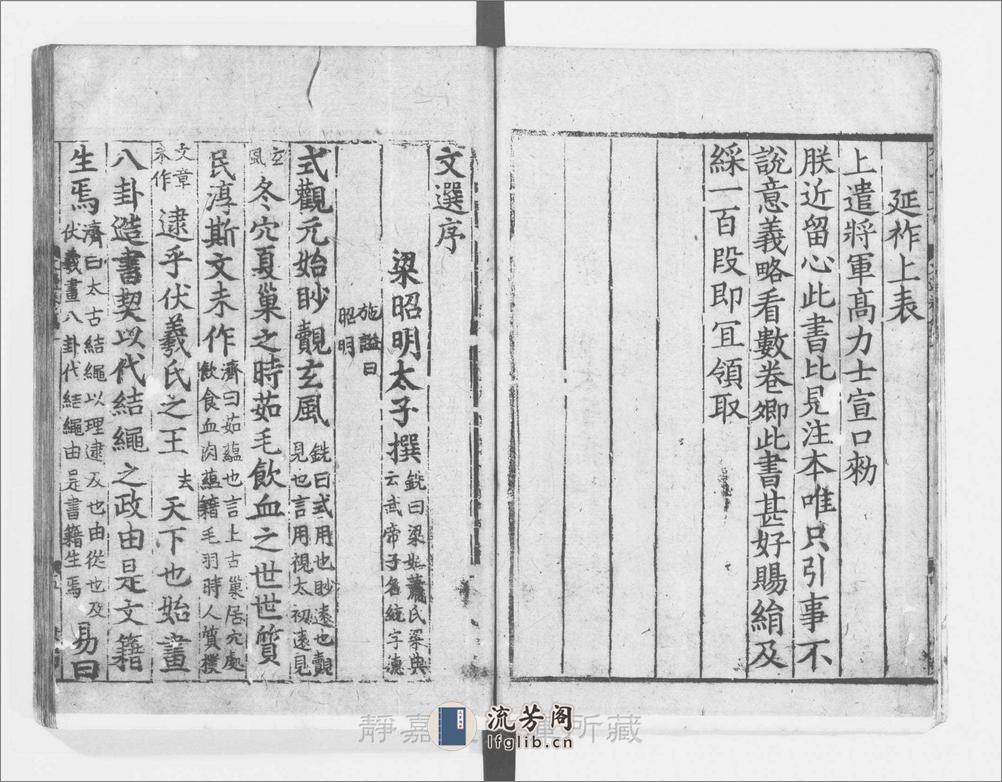 延祚上表
上遣將軍高力士宣口勑
朕近留心此書比見注本唯只引事不
說意義略看數卷卿此書甚好賜絹及
綵一百段即宜領取
文選序
梁昭明太子撰 銑曰梁姓蕭氏梁典
云武帝子名統字德
施謚曰
昭明
式觀元始眇覿玄風 銑曰式用也眇遠也覿
見也言用視太初遠見
玄
風 冬穴夏巢之時茹毛飲血之世世質
民淳斯文未作 濟曰茹蘊也言上古巢居穴處
飲食血肉蘊籍毛羽時人質樸
文章
未作 逮乎伏羲氏之王 去 天下也始畫
八卦造書契以代結繩之政由是文籍
生焉 濟曰太古結繩以理逮及也由從也及
伏羲畫八卦代結繩由是書籍生焉 易曰
靜嘉 所藏
流芳阁
lfglib.cn